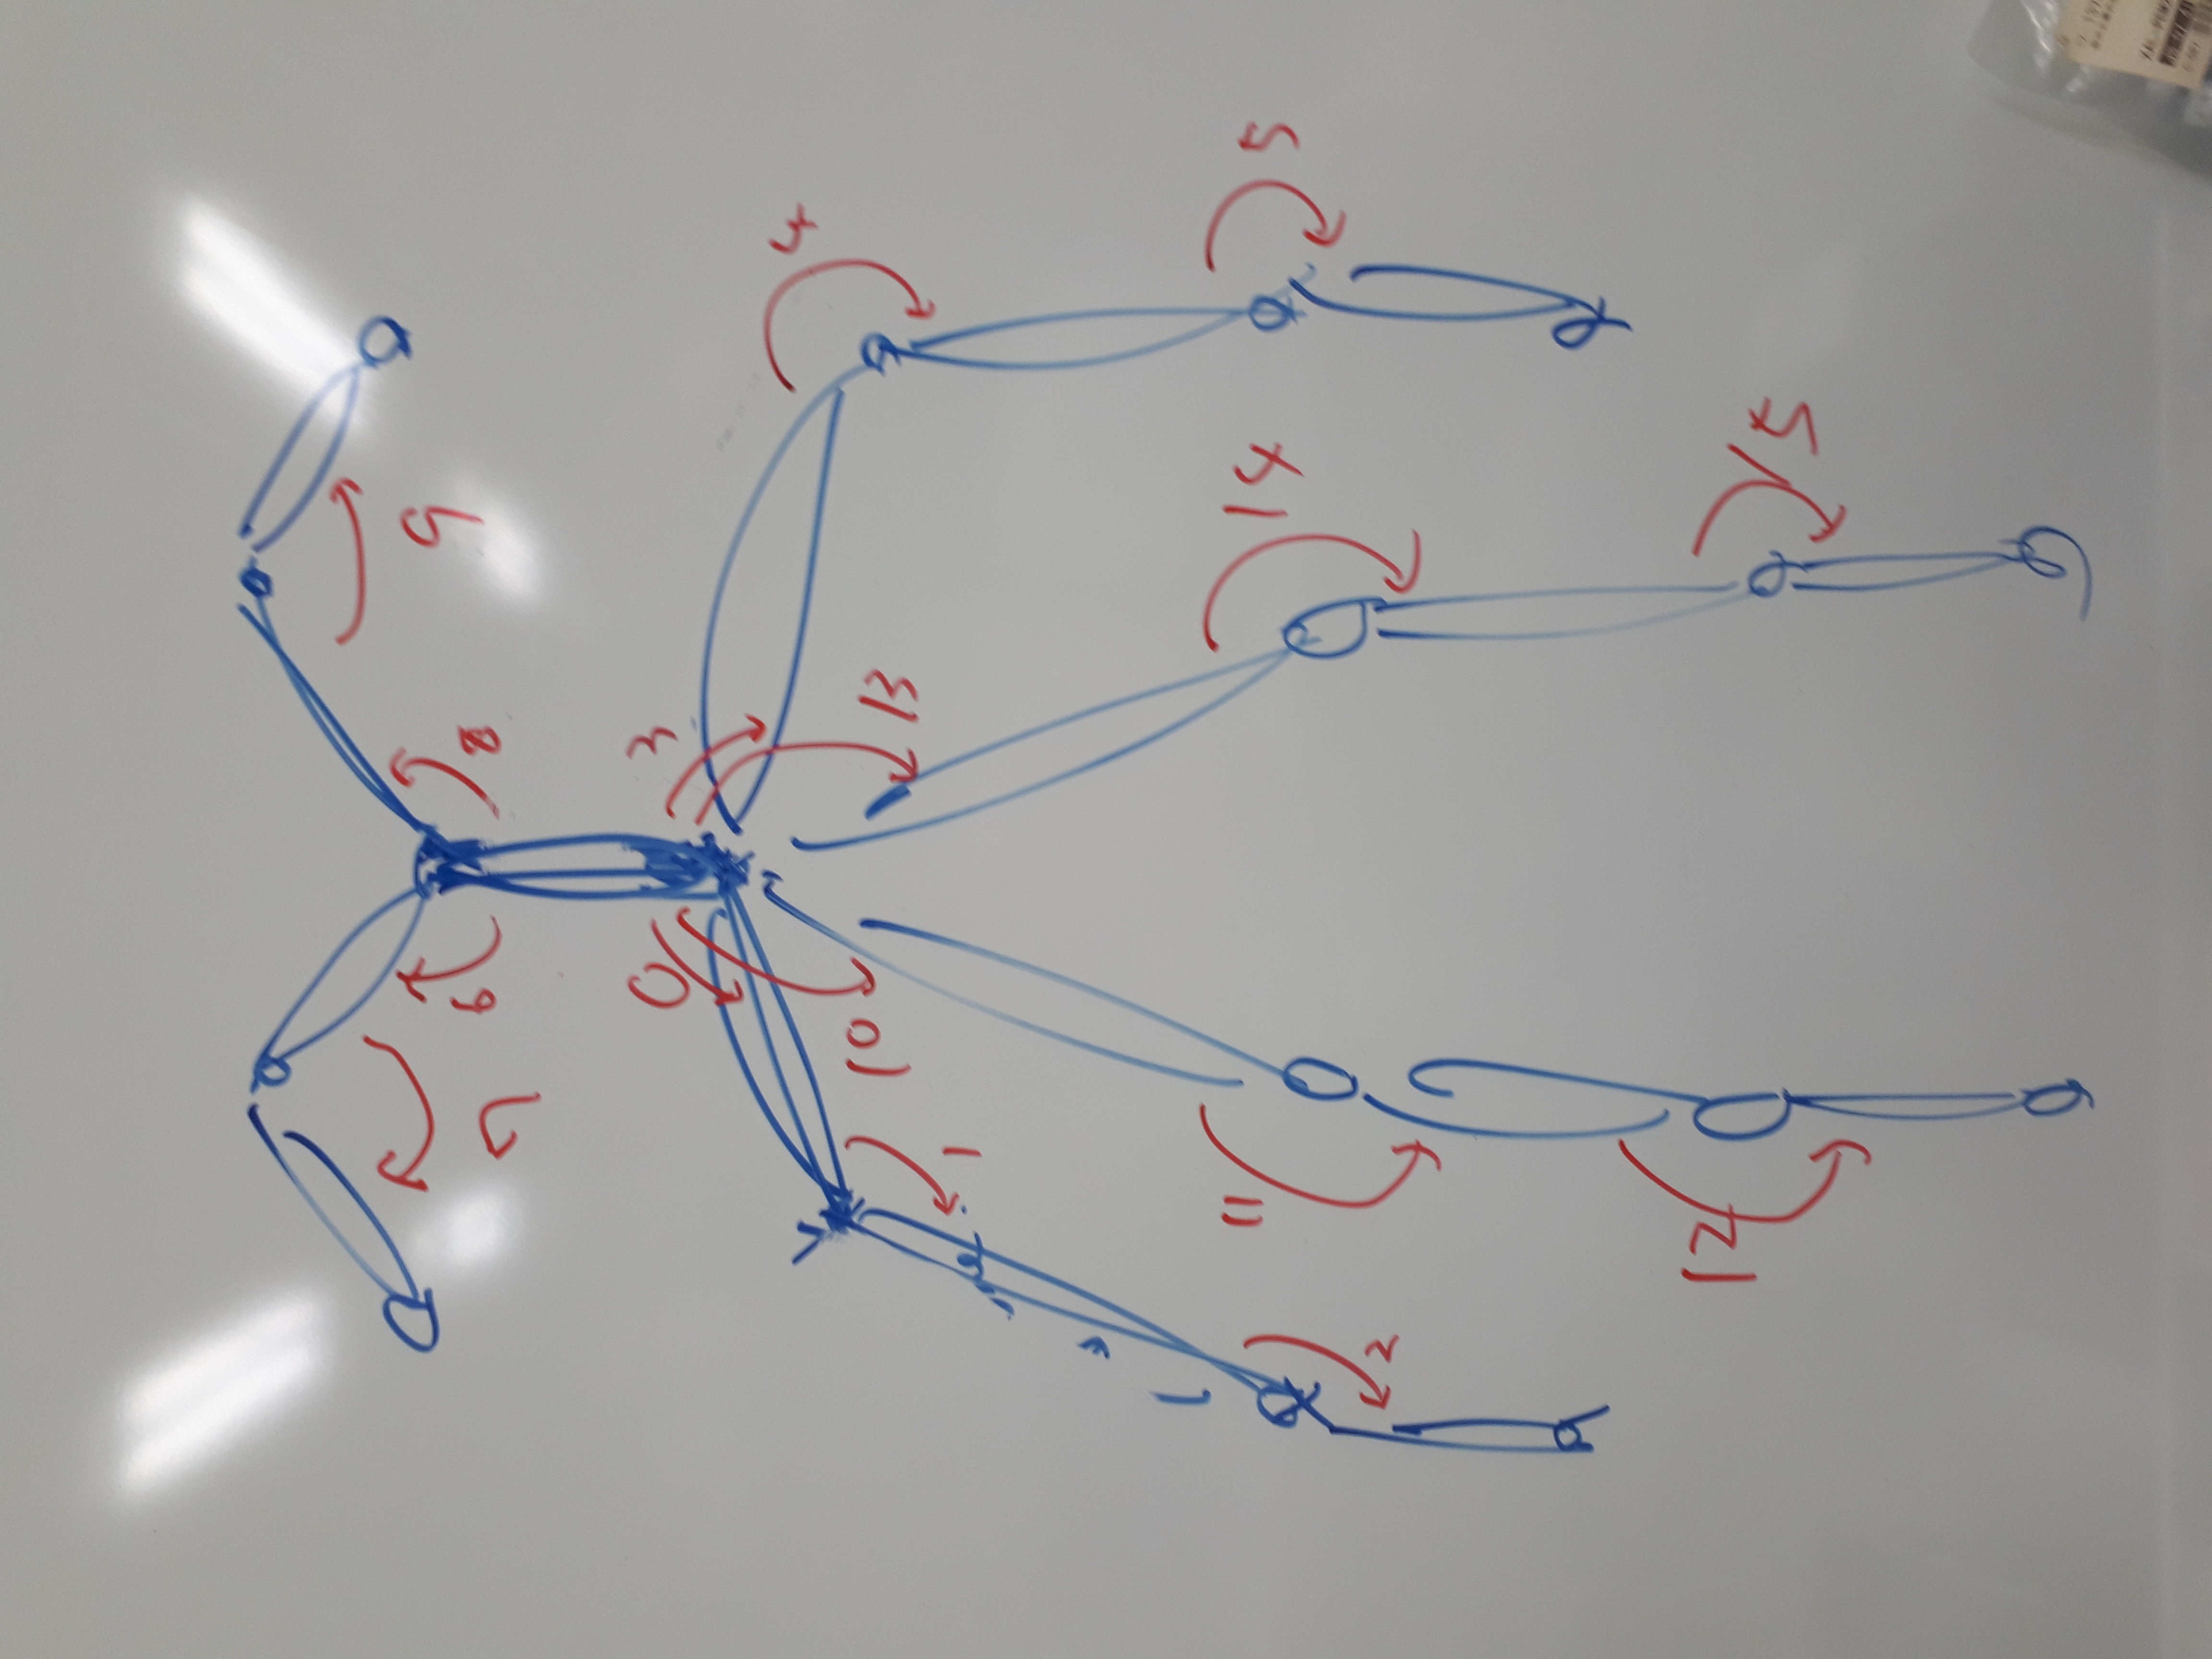 9
6
8
7
0
3
4
10
13
1
11
14
5
2
12
15